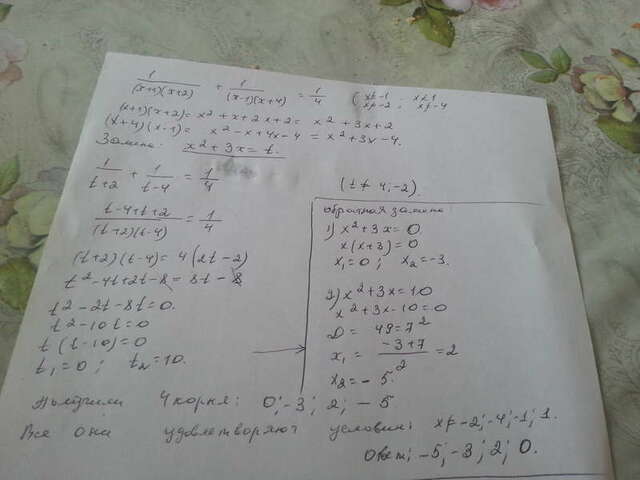 1/((x+1)(x+2)) + 1/((x-1)(x+4)) = 1/4 ( x≠-1 x≠1
x≠-2 ; x≠-4
(x+1)(x+2) = x²+x+2x+2 = x²+3x+2
(x+4)(x-1) = x²-x+4x-4 = x²+3x-4.
Замена: x²+3x=t.
1/(t+2) + 1/(t-4) = 1/4
(t≠4;-2).
(t-4+t+2)/((t+2)(t-4)) = 1/4
(t+2)(t-4)=4(2t-2)
t²-4t+2t-8=8t-8
t²-2t-8t=0.
t²-10t=0
t(t-10)=0
t₁=0; t₂=10.
обратная замена
1) x²+3x=0
x(x+3)=0
x₁=0; x₂=-3.
2) x²+3x=10
x²+3x-10=0
D=49=7²
x₁=(-3+7)/2=2
x₂=-5.
Получили 4 корня: 0;-3; 2; -5
Все они удовлетворяют условия: x≠-2;-4;-1;1.
Ответ: -5;-3;2;0.